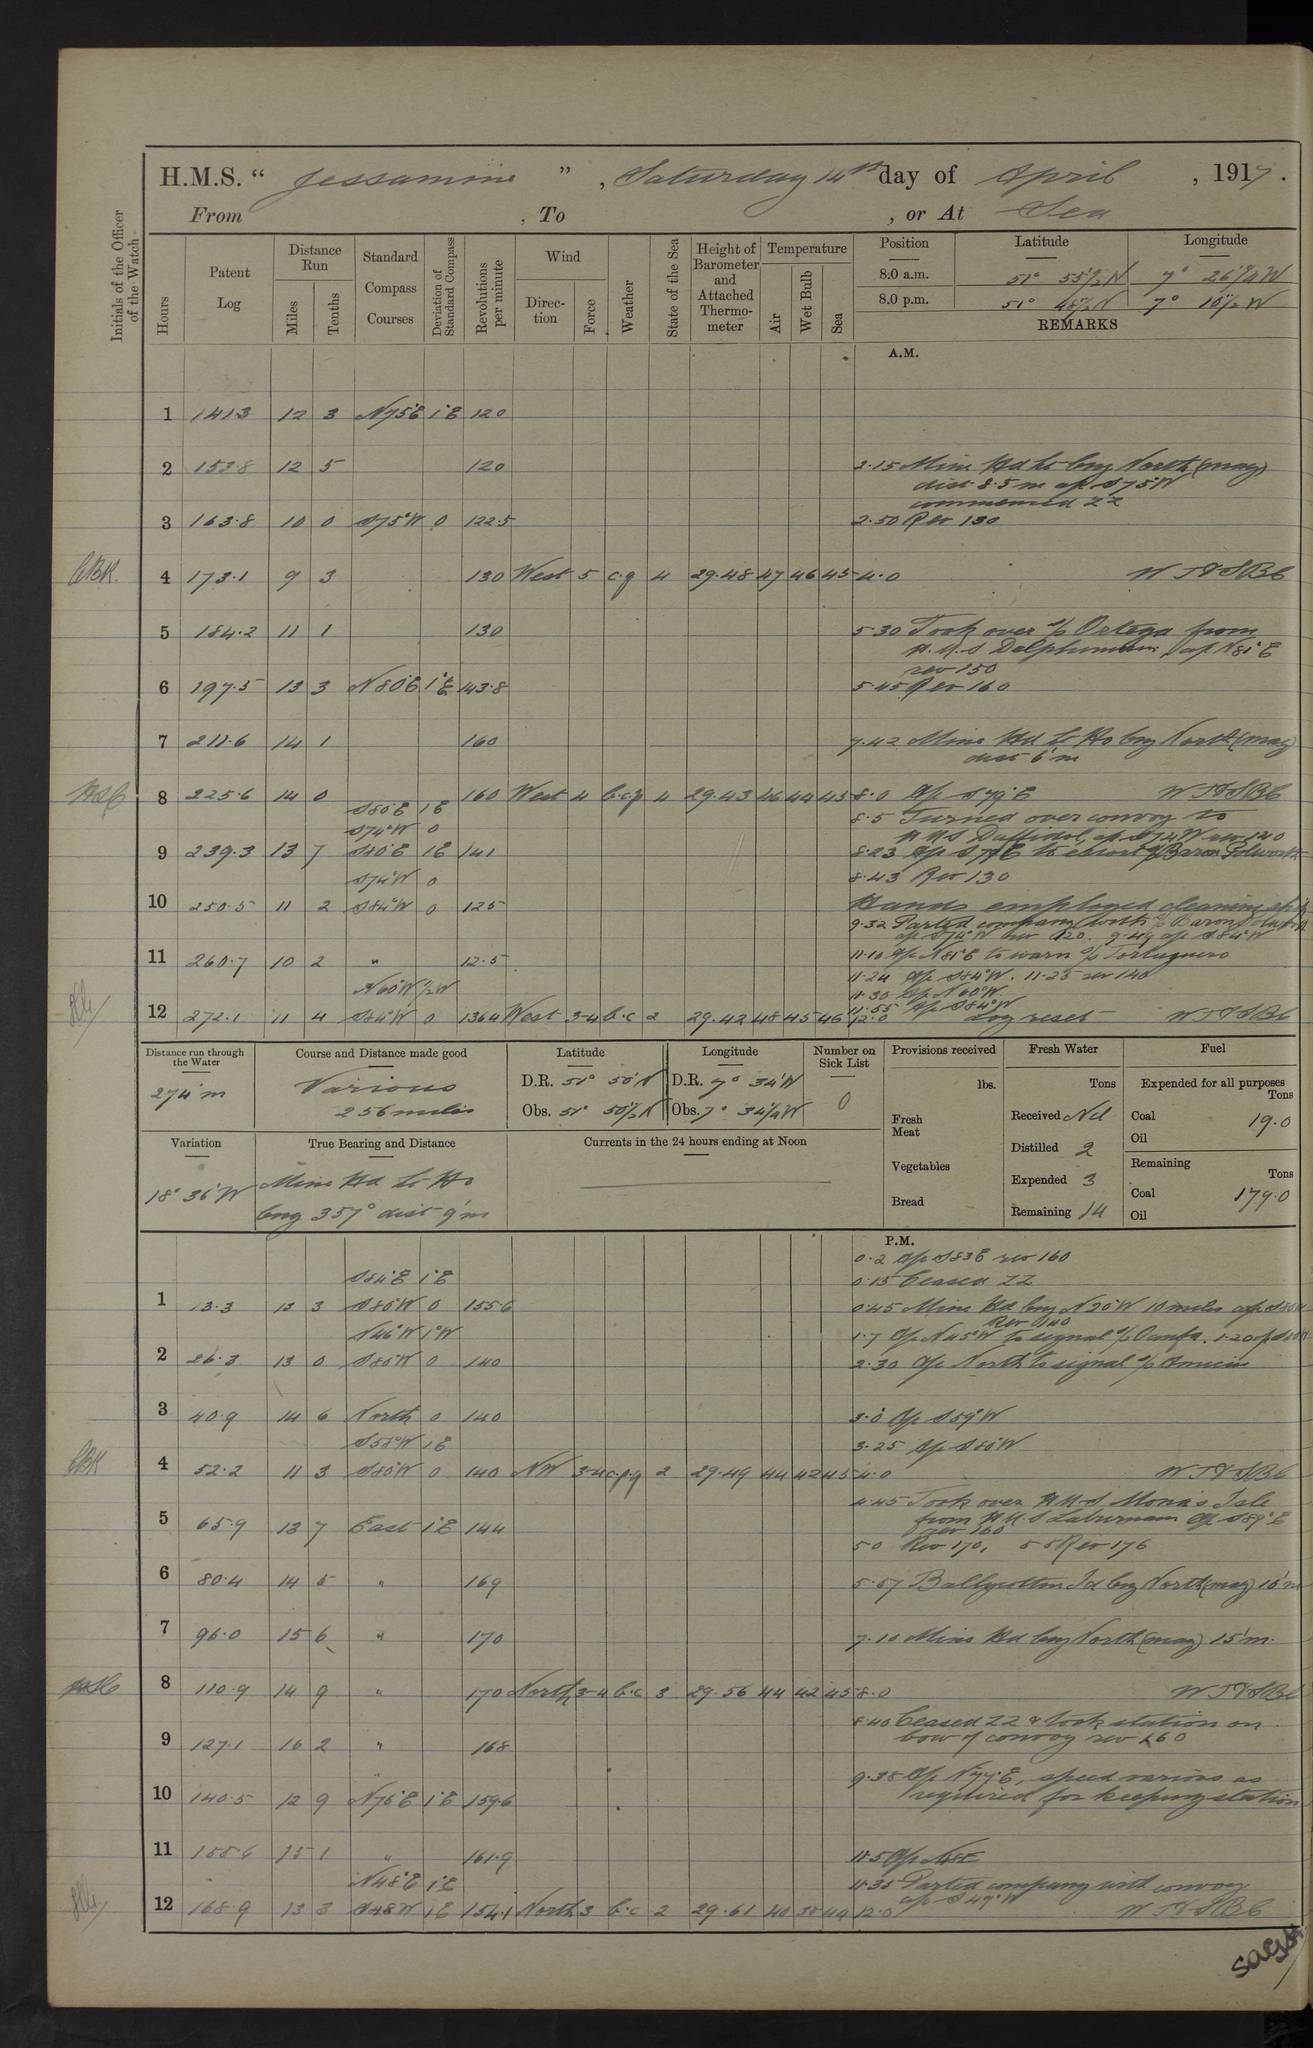 H.M.S. “ Jessamine ” , Saturday 14th day of April , 1917.
From , To , or At Sea
Initials of the Officer of the Watch
Hours
Patent Log
Distance Run
Miles
Tenths
Standard Compass Courses
Deviation of Standard Compass
Revolutions per minute
Wind
Direc- tion
Force
Weather
State of the Sea
Height of Barometer and Attached Thermo- meter
Temperature
Air
Wet Bulb
Sea
Position Latitude Longitude
8.0 a.m. 51° 55½ N 7° 26¼ W
8.0 p.m. 51° 48½ N 7° 10½ W
REMARKS
A.M.
1 141.3 12 3 N75°E 1°E 120
2 153.8 12 5 120 2.15 Mine Hd Lt brg North (mag)
dist 8.5 m a/c S75°W
commenced ZZ
3 163.8 10 0 S75°W 0 122.5 2.50 Rev 130
CBK. 4 173.1 9 3 130 West 5 c.q 4 29.48 47 46 45 4.0
5 184.2 11 1 130 5.30 Took over S/S Ortega from
H.M.S Delphinium, a/c N81°E
rev 150
6 197.5 13 3 N80°E 1°E 143.8 5.45 Rev 160
7 211.6 14 1 160 7.42 Mine Hd Lt Ho brg North (mag)
dist 6'm
8 225.6 14 0 160 West 4 b.c.p 4 29.43 46 44 45 8.0 a/c S79°E
S80°E 1°E
8.5 Turned over convoy to
S74°W 0
H.M.S Daffodil, a/c S74W rev 120
9 239.3 13 7 S80°E 1E 141 8.23 a/c S79E to escort S/S Baron Polwarth
S74°W 0 8.43 Rev 130
10 250.5 11 2 S84°W 0 125 Hands employed cleaning ship
9.32 Parted company with S/S Baron Polwarth
a/c S74°W rev 120. 9.49 a/c S84°W
11 260.7 10 2 " 12.5 11.10 a/c N81°E to warn S/S Tortuguero
11.24 a/c S84°W. 11.25 rev 140
N60°W ½W 11.30 a/c N60°W
11.55 a/c S84°W
12 272.1 11 4 S84°W 0 136.4 West 3-4 b.c 2 29.42 48 45 46 12.0 Log reset
Distance run through the Water
274'm
Course and Distance made good
Various
256 miles
Latitude
D.R. 51° 50'N
Obs. 51° 50½'N
Longitude
D.R. 7° 34'W
Obs. 7° 34¼W
Number on Sick List
0
Provisions received
lbs.
Fresh Meat
Vegetables
Bread
Fresh Water
Tons
Received Nil
Distilled 2
Expended 3
Remaining 14
Fuel
Expended for all purposes
Tons
Coal 19.0
Oil
Remaining
Tons
Coal 179.0
Oil
Variation
18° 36'W
True Bearing and Distance
Mine Hd Lt Ho
brg 357° dist 9'm
Currents in the 24 hours ending at Noon
P.M.
0.2 a/c S83E rev 160
S84°E 1°E 0.15 Ceased ZZ
1 13.3 13 3 S80°W 0 155.6 0.45 Mine Hd brg N20°W 10 miles a/c S80W
Rev 140
N46°W 1°W 1.7 a/c N45°W to signal S/S Oanfa. 1.20 a/c S80W
2 26.3 13 0 S80°W 0 140 2.30 a/c North to signal S/S
3 40.9 14 6 North 0 140 3.0 a/c S59°W
S58°W 1E 3.25 a/c S80°W
CBK 4 52.2 11 3 S80°W 0 140 NW 3-4 c.p.q 2 29.49 44 42 45 4.0
4.45 Took over H.M.S Mona's Isle
5 65.9 13 7 East 1°E 144 from H.M.S Laburnum a/c S89°E
rev 160
5.0 Rev 170, 5.5 Rev 176
6 80.4 14 5 " 169 5.57 Ballycotton Id brg North (mag) 10'm
7 96.0 15 6 " 170 7.10 Mine Hd brg North (mag) 15'm.
8 110.9 14 9 " 170 North 3-4 b.c 3 29.56 44 42 45 8.0
8.40 Ceased ZZ & took station on
9 127.1 16 2 " 168 bow of convoy rev 160
9.38 a/c N77°E, speed various as
10 140.5 12 9 N76°E 1°E 159.6 required for keeping station
11 155.6 15 1 " 161.9 11.5 a/c N48E
N48°E 1°E 11.35 Parted company with convoy
a/c S49°W
12 168.9 13 3 S48W 1E 154.1 North 3 b.c 2 29.61 40 38 44 12.0